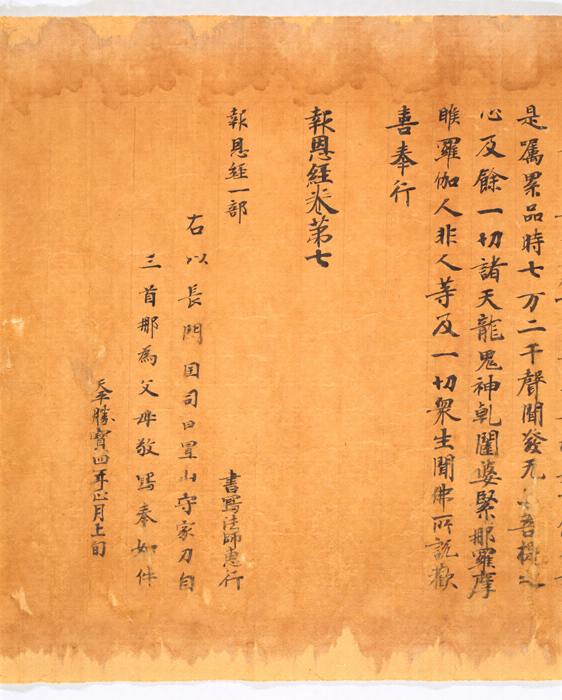 是属累品時七万二千聲聞發无上菩提之
心及餘一切諸天龍鬼神乹闥婆緊那羅摩
睺羅伽人非人等及一切衆生聞佛所說歡
喜奉行
報恩經卷第七
報恩經一部
書寫法師惠行
右以長門国司日置山守家刀自
三首那為父母敬寫奉如件
天平勝寳四年正月上旬